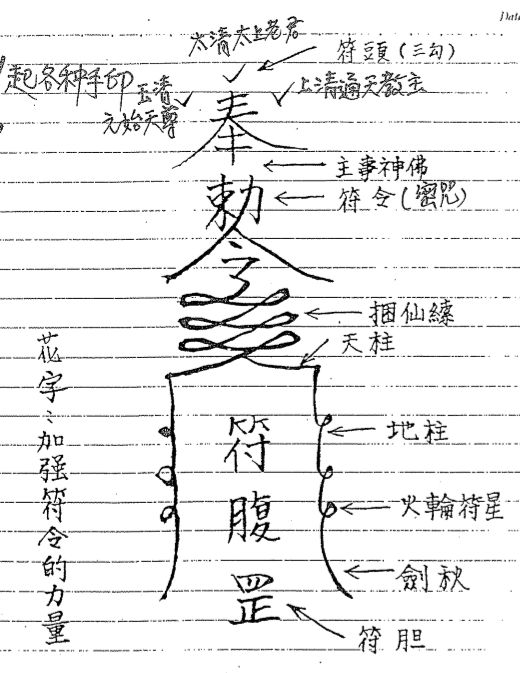 Dat
太清太上老君
符頭(三勾)
起各种手印
玉清
元始天尊
上清通天教主
奉
主事神佛
勅
符令(密咒)
令
捆仙繩
天柱
花字:加强符令的力量
符
腹
罡
地柱
火輪符星
劍秋
符胆